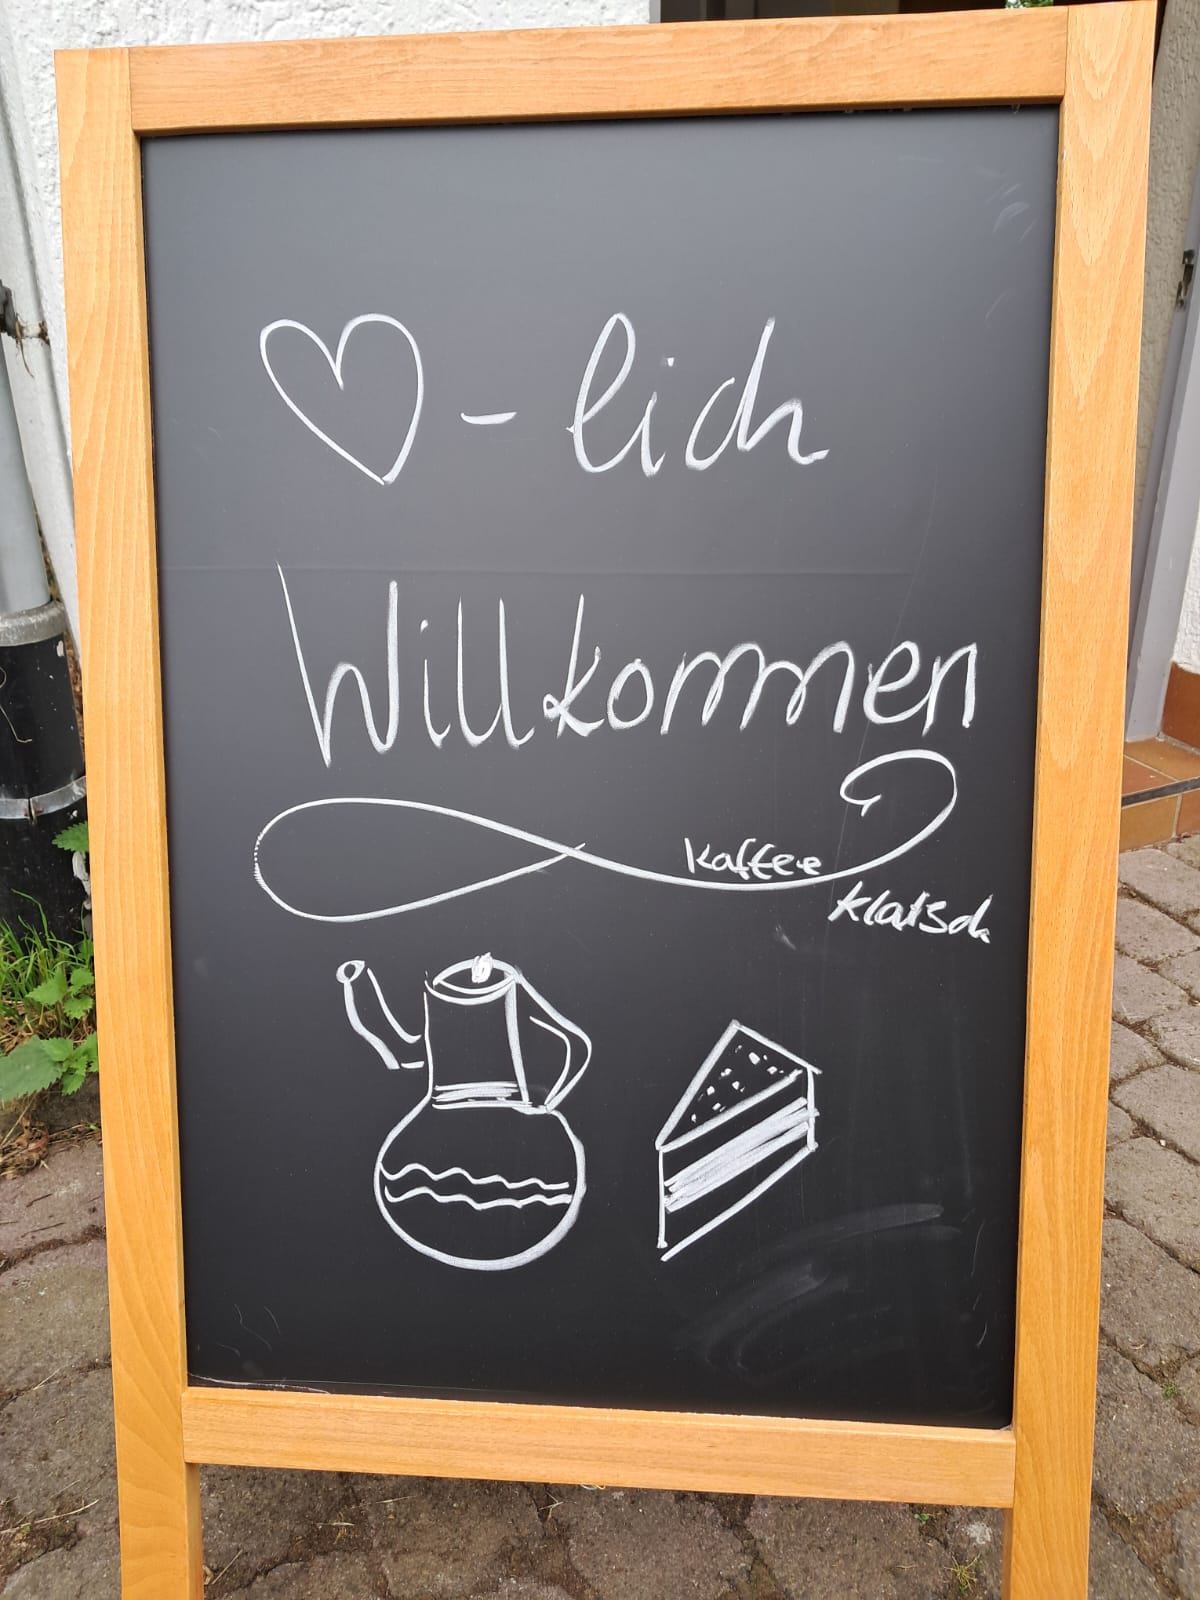 ♡-lich
Willkommen
Kaffee
Klatsch